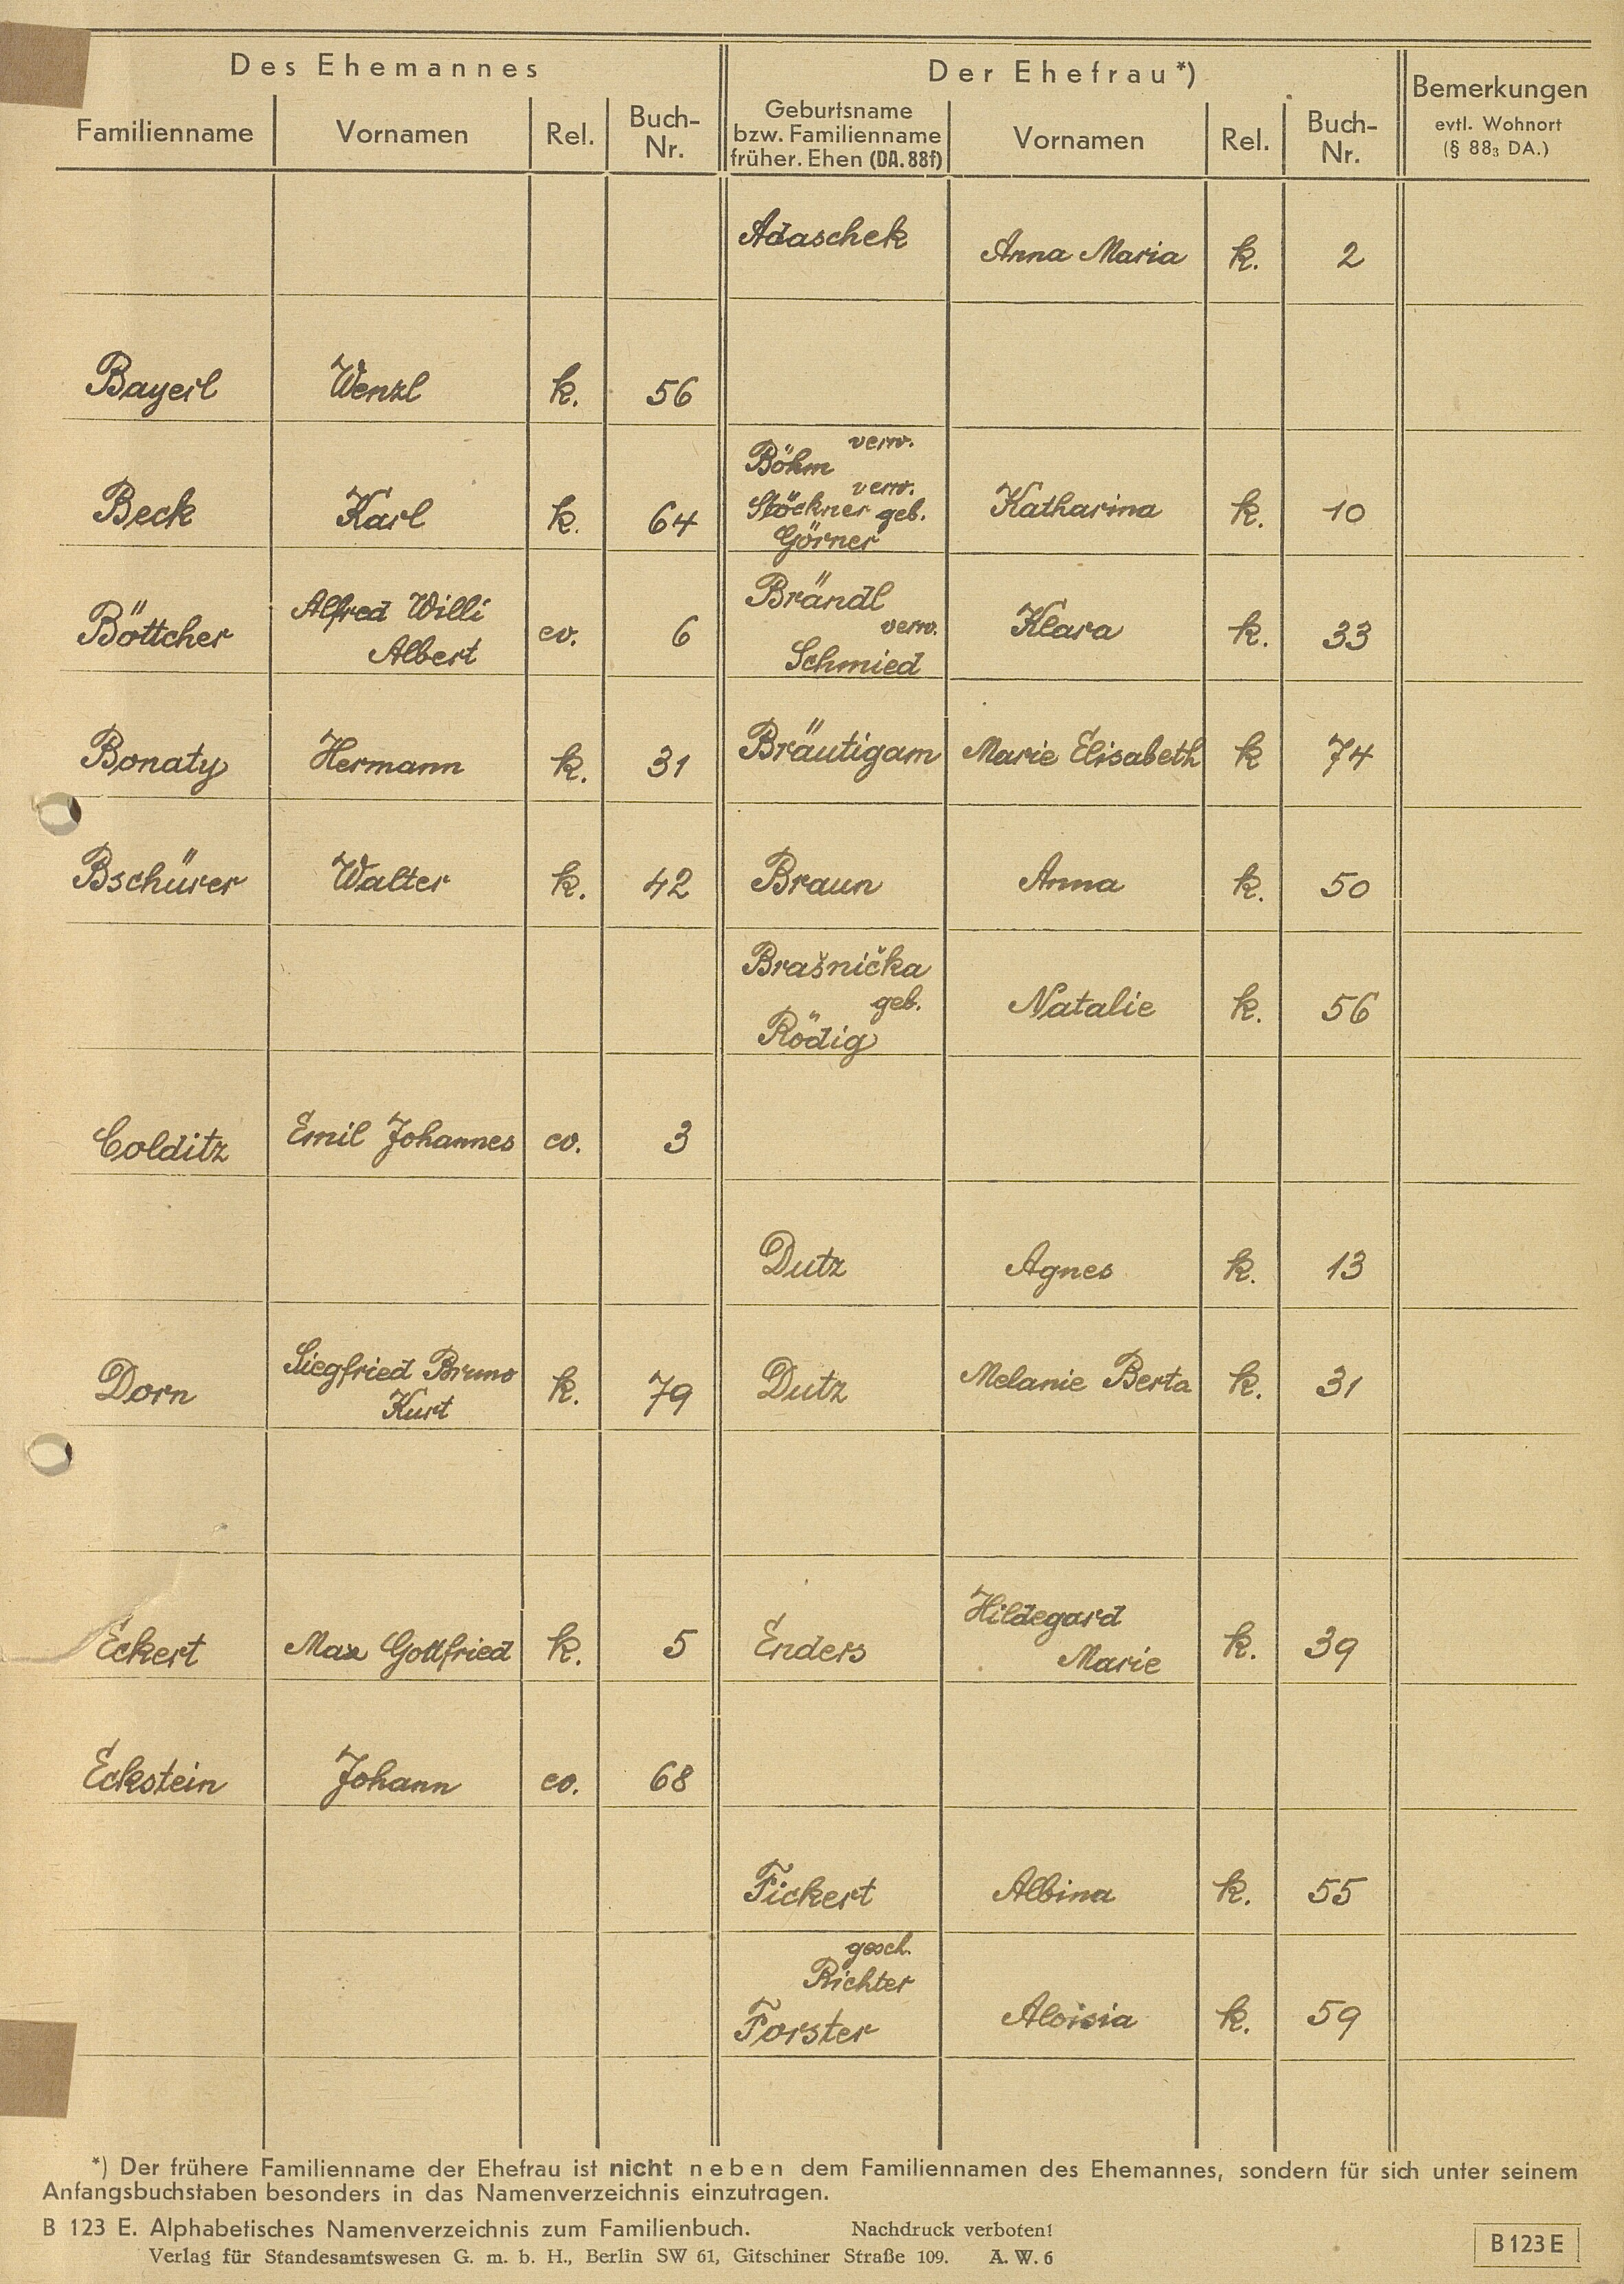 Des Ehemannes Der Ehefrau*) Bemerkungen evtl. Wohnort (§ 88₃ DA.)
Familienname Vornamen Rel. Buch-Nr. Geburtsname bzw. Familienname früher. Ehen (DA. 88f) Vornamen Rel. Buch-Nr.
Adaschek Anna Maria k. 2
Bayerl Wenzl k. 56
Beck Karl k. 64 Böhm verw. Stöckner verw. geb. Görner Katharina k. 10
Böttcher Alfred Willi Albert ev. 6 Brändl verw. Schmied Klara k. 33
Bonaty Hermann k. 31 Bräutigam Marie Elisabeth k 74
Bschürer Walter k. 42 Braun Anna k. 50
Brašnička geb. Rödig Natalie k. 56
Colditz Emil Johannes ev. 3
Dutz Agnes k. 13
Dorn Siegfried Bruno Kurt k. 79 Dutz Melanie Berta k. 31
Eckert Max Gottfried k. 5 Enders Hildegard Marie k. 39
Eckstein Johann ev. 68
Fickert Albina k. 55
gesch. Richter Forster Aloisia k. 59
*) Der frühere Familienname der Ehefrau ist nicht neben dem Familiennamen des Ehemannes, sondern für sich unter seinem
Anfangsbuchstaben besonders in das Namenverzeichnis einzutragen.
B 123 E. Alphabetisches Namenverzeichnis zum Familienbuch. Nachdruck verboten!
Verlag für Standesamtswesen G. m. b. H., Berlin SW 61, Gitschiner Straße 109. A. W. 6
B 123 E